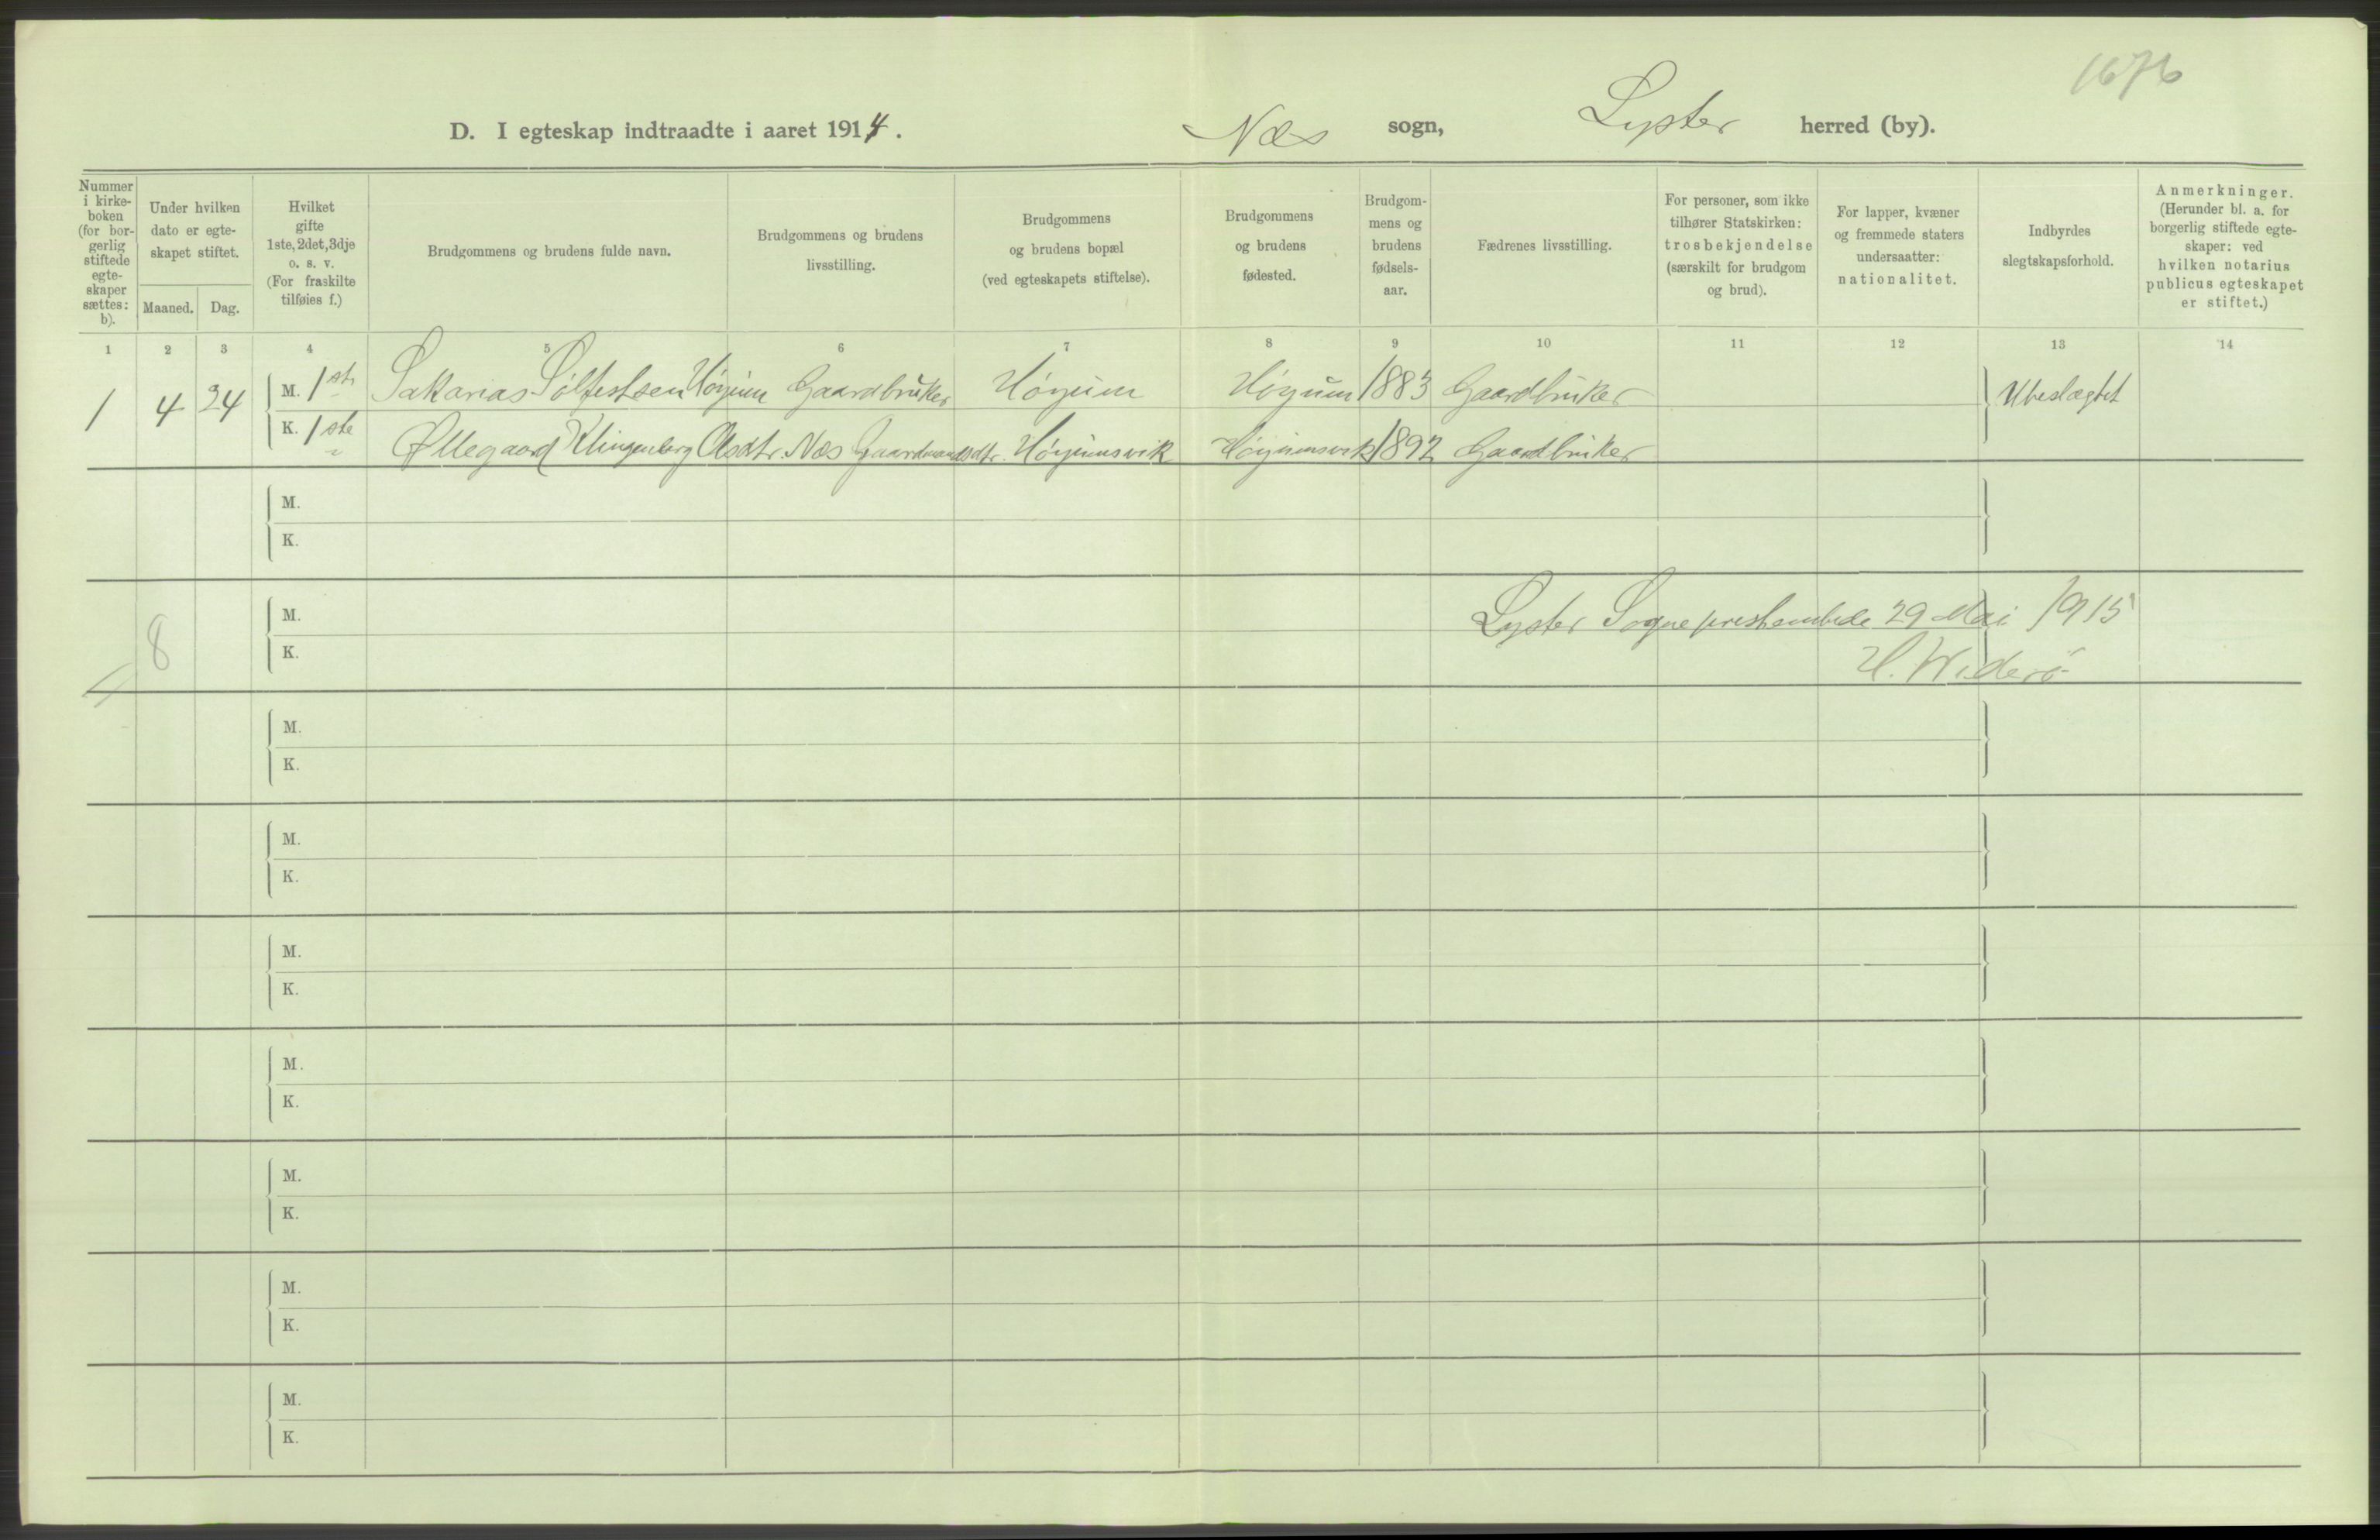 1676
D. I egteskap indtraadte i aaret 1914.
Næs sogn, Lyster herred (by).
Nummer i kirkeboken (for borgerlig stiftede egteskaper sættes: b).
Under hvilken dato er egteskapet stiftet.
Maaned. Dag.
Hvilket gifte 1ste, 2det, 3dje o. s. v. (For fraskilte tilføies f.)
Brudgommens og brudens fulde navn.
Brudgommens og brudens livsstilling.
Brudgommens og brudens bopæl (ved egteskapets stiftelse).
Brudgommens og brudens fødested.
Brudgommens og brudens fødselsaar.
Fædrenes livsstilling.
For personer, som ikke tilhører Statskirken: trosbekjendelse (særskilt for brudgom og brud).
For lapper, kvæner og fremmede staters undersaatter: nationalitet.
Indbyrdes slegtskapsforhold.
Anmerkninger. (Herunder bl. a. for borgerlig stiftede egteskaper: ved hvilken notarius publicus egteskapet er stiftet.)
1 2 3 4 5 6 7 8 9 10 11 12 13 14
1 4 24 M. 1ste Sakarias Sølfestsen Høyum Gaardbruker Høyum Høyum 1883 Gaardbruker Ubeslægtet
K. 1ste Øllegaard Klingenberg Olsdtr. Næs Gaardmandsdtr. Høyumsvik Høyumsvik 1892 Gaardbruker
M.
K.
M. Lyster Sogneprestembede 29 Mai 1915
8 K. H. Widerö
M.
K.
M.
K.
M.
K.
M.
K.
M.
K.
M.
K.
M.
K.